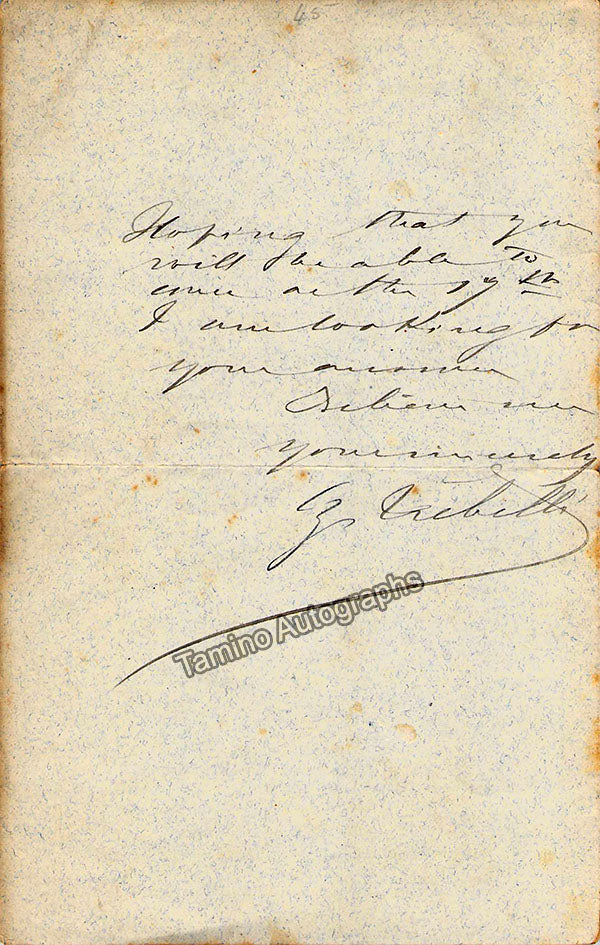 45
Hoping that you
will be able to
come on the 19th
I am looking for
your answer
Believe me
yours sincerely
Z. Trebelli
Tamino Autographs